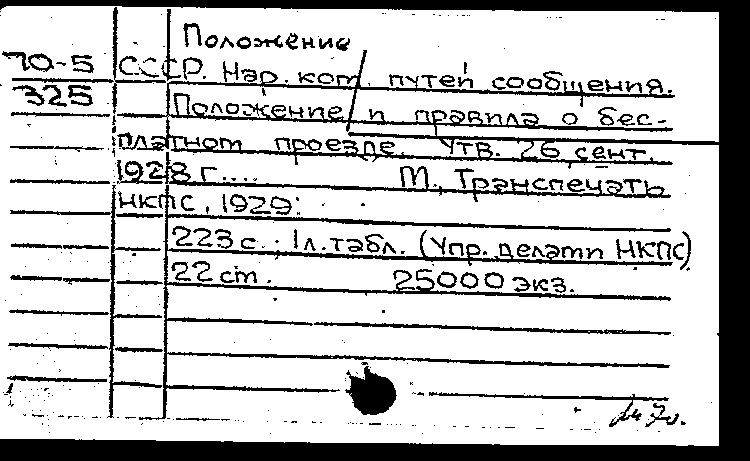 Положение
70-5 СССР. Нар. ком. путей сообщения.
325 Положение и правила о бес-
платном проезде. Утв. 26 сент.
1928 г.... М., Транспечать
НКПС, 1929.
223 с. 1 л. табл. (Упр. делами НКПС)
22 см. 25000 экз.